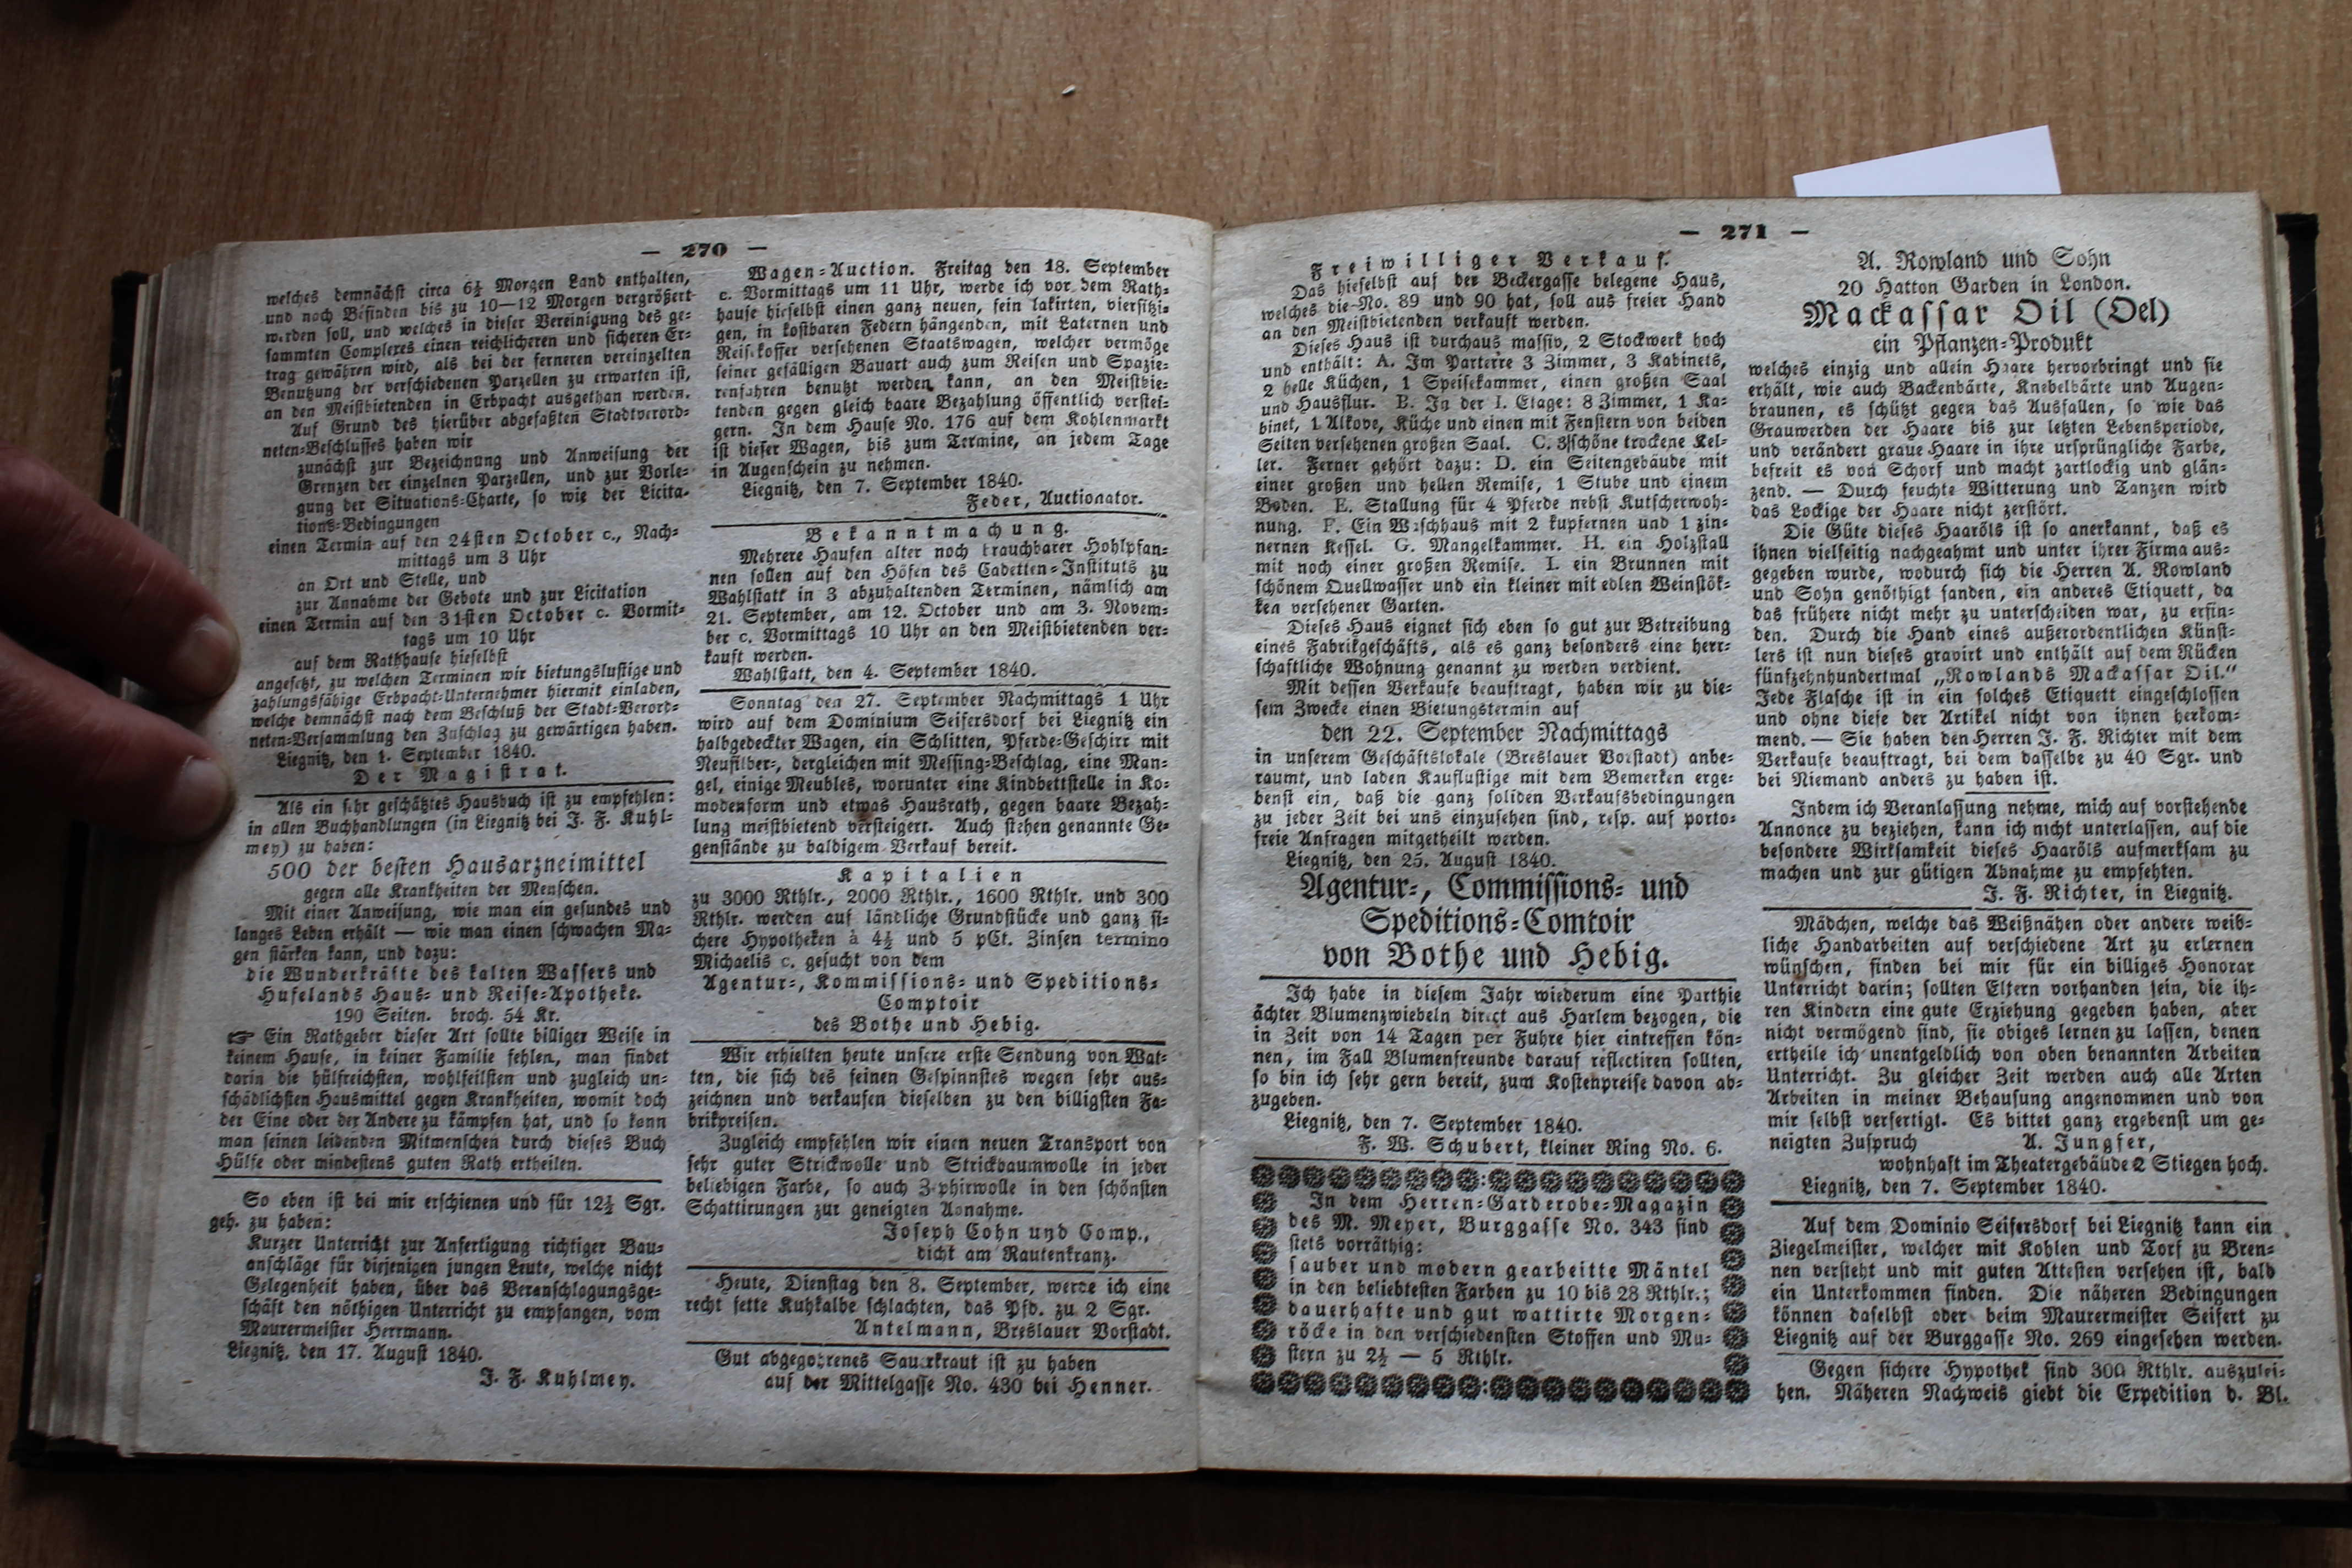 — 270 —
welches demnächst circa 6½ Morgen Land enthalten,
und nach Befinden bis zu 10—12 Morgen vergrößert
werden soll, und welches in dieser Vereinigung des ge-
sammten Complexes einen reichlicheren und sicheren Er-
trag gewähren wird, als bei der ferneren vereinzelten
Benutzung der verschiedenen Parzellen zu erwarten ist,
an den Meistbietenden in Erbpacht ausgethan werden.
Auf Grund des hierüber abgefaßten Stadtverord-
neten-Beschlusses haben wir
zunächst zur Bezeichnung und Anweisung der
Grenzen der einzelnen Parzellen, und zur Vorle-
gung der Situations-Charte, so wie der Licita-
tions-Bedingungen
einen Termin auf den 24sten October c., Nach-
mittags um 3 Uhr
an Ort und Stelle, und
zur Annahme der Gebote und zur Licitation
einen Termin auf den 31sten October c. Vormit-
tags um 10 Uhr
auf dem Rathhause hieselbst
angesetzt, zu welchen Terminen wir bietungslustige und
zahlungsfähige Erbpacht-Unternehmer hiermit einladen,
welche demnächst nach dem Beschluß der Stadt-Verord-
neten-Versammlung den Zuschlag zu gewärtigen haben.
Liegnitz, den 1. September 1840.
Der Magistrat.
Als ein sehr geschätztes Hausbuch ist zu empfehlen:
in allen Buchhandlungen (in Liegnitz bei J. F. Kuhl-
mey) zu haben:
500 der besten Hausarzneimittel
gegen alle Krankheiten der Menschen.
Mit einer Anweisung, wie man ein gesundes und
langes Leben erhält — wie man einen schwachen Ma-
gen stärken kann, und dazu:
die Wunderkräfte des kalten Wassers und
Hufelands Haus- und Reise-Apotheke.
190 Seiten. broch. 54 Kr.
☞ Ein Rathgeber dieser Art sollte billiger Weise in
keinem Hause, in keiner Familie fehlen, man findet
darin die hülfreichsten, wohlfeilsten und zugleich un-
schädlichsten Hausmittel gegen Krankheiten, womit doch
der Eine oder der Andere zu kämpfen hat, und so kann
man seinen leidenden Mitmenschen durch dieses Buch
Hülfe oder mindestens guten Rath ertheilen.
So eben ist bei mir erschienen und für 12½ Sgr.
geh. zu haben:
Kurzer Unterricht zur Anfertigung richtiger Bau-
anschläge für diejenigen jungen Leute, welche nicht
Gelegenheit haben, über das Veranschlagungsge-
schäft den nöthigen Unterricht zu empfangen, vom
Maurermeister Herrmann.
Liegnitz, den 17. August 1840.
J. F. Kuhlmey.
Wagen-Auction. Freitag den 18. September
c. Vormittags um 11 Uhr, werde ich vor dem Rath-
hause hieselbst einen ganz neuen, fein lakirten, viersitzi-
gen, in kostbaren Federn hängenden, mit Laternen und
Reisekoffer versehenen Staatswagen, welcher vermöge
seiner gefälligen Bauart auch zum Reisen und Spazie-
renfahren benutzt werden kann, an den Meistbie-
tenden gegen gleich baare Bezahlung öffentlich verstei-
gern. In dem Hause No. 176 auf dem Kohlenmarkt
ist dieser Wagen, bis zum Termine, an jedem Tage
in Augenschein zu nehmen.
Liegnitz, den 7. September 1840.
Feder, Auctionator.
Bekanntmachung.
Mehrere Haufen alter noch brauchbarer Hohlpfan-
nen sollen auf den Höfen des Cadetten-Instituts zu
Wahlstatt in 3 abzuhaltenden Terminen, nämlich am
21. September, am 12. October und am 3. Novem-
ber c. Vormittags 10 Uhr an den Meistbietenden ver-
kauft werden.
Wahlstatt, den 4. September 1840.
Sonntag den 27. September Nachmittags 1 Uhr
wird auf dem Dominium Seifersdorf bei Liegnitz ein
halbgedeckter Wagen, ein Schlitten, Pferde-Geschirr mit
Neusilber-, dergleichen mit Messing-Beschlag, eine Man-
gel, einige Meubles, worunter eine Kindbettstelle in Ko-
modenform und etwas Hausrath, gegen baare Bezah-
lung meistbietend versteigert. Auch stehen genannte Ge-
genstände zu baldigem Verkauf bereit.
Kapitalien
zu 3000 Rthlr., 2000 Rthlr., 1600 Rthlr. und 300
Rthlr. werden auf ländliche Grundstücke und ganz si-
chere Hypotheken à 4½ und 5 pCt. Zinsen termino
Michaelis c. gesucht von dem
Agentur-, Kommissions- und Speditions-
Comptoir
des Bothe und Hebig.
Wir erhielten heute unsere erste Sendung von Wat-
ten, die sich des feinen Gespinnstes wegen sehr aus-
zeichnen und verkaufen dieselben zu den billigsten Fa-
brikpreisen.
Zugleich empfehlen wir einen neuen Transport von
sehr guter Strickwolle und Strickbaumwolle in jeder
beliebigen Farbe, so auch Zephirwolle in den schönsten
Schattirungen zur geneigten Abnahme.
Joseph Cohn und Comp.,
dicht am Rautenkranz.
Heute, Dienstag den 8. September, werde ich eine
recht fette Kuhkalbe schlachten, das Pfd. zu 2 Sgr.
Antelmann, Breslauer Vorstadt.
Gut abgegohrenes Sauerkraut ist zu haben
auf der Mittelgasse No. 430 bei Henner.
— 271 —
Freiwilliger Verkauf.
Das hieselbst auf der Beckergasse belegene Haus,
welches die No. 89 und 90 hat, soll aus freier Hand
an den Meistbietenden verkauft werden.
Dieses Haus ist durchaus massiv, 2 Stockwerk hoch
und enthält: A. Im Parterre 3 Zimmer, 3 Kabinets,
2 helle Küchen, 1 Speisekammer, einen großen Saal
und Hausflur. B. In der I. Etage: 8 Zimmer, 1 Ka-
binet, 1 Alkove, Küche und einen mit Fenstern von beiden
Seiten versehenen großen Saal. C. 3 schöne trockene Kel-
ler. Ferner gehört dazu: D. ein Seitengebäude mit
einer großen und hellen Remise, 1 Stube und einem
Boden. E. Stallung für 4 Pferde nebst Kutscherwoh-
nung. F. Ein Waschhaus mit 2 kupfernen und 1 zin-
nernen Kessel. G. Mangelkammer. H. ein Holzstall
mit noch einer großen Remise. I. ein Brunnen mit
schönem Quellwasser und ein kleiner mit edlen Weinstök-
ken versehener Garten.
Dieses Haus eignet sich eben so gut zur Betreibung
eines Fabrikgeschäfts, als es ganz besonders eine herr-
schaftliche Wohnung genannt zu werden verdient.
Mit dessen Verkaufe beauftragt, haben wir zu die-
sem Zwecke einen Bietungstermin auf
den 22. September Nachmittags
in unserem Geschäftslokale (Breslauer Vorstadt) anbe-
raumt, und laden Kauflustige mit dem Bemerken erge-
benst ein, daß die ganz soliden Verkaufsbedingungen
zu jeder Zeit bei uns einzusehen sind, resp. auf porto-
freie Anfragen mitgetheilt werden.
Liegnitz, den 25. August 1840.
Agentur-, Commissions- und
Speditions-Comtoir
von Bothe und Hebig.
Ich habe in diesem Jahr wiederum eine Parthie
ächter Blumenzwiebeln direct aus Harlem bezogen, die
in Zeit von 14 Tagen per Fuhre hier eintreffen kön-
nen, im Fall Blumenfreunde darauf reflectiren sollten,
so bin ich sehr gern bereit, zum Kostenpreise davon ab-
zugeben.
Liegnitz, den 7. September 1840.
F. W. Schubert, kleiner Ring No. 6.
In dem Herren-Garderobe-Magazin
des M. Meyer, Burggasse No. 343 sind
stets vorräthig:
sauber und modern gearbeitte Mäntel
in den beliebtesten Farben zu 10 bis 28 Rthlr.;
dauerhafte und gut wattirte Morgen-
röcke in den verschiedensten Stoffen und Mu-
stern zu 2½ — 5 Rthlr.
A. Rowland und Sohn
20 Hatton Garden in London.
Mackassar Oil (Oel)
ein Pflanzen-Produkt
welches einzig und allein Haare hervorbringt und sie
erhält, wie auch Backenbärte, Knebelbärte und Augen-
braunen, es schützt gegen das Ausfallen, so wie das
Grauwerden der Haare bis zur letzten Lebensperiode,
und verändert graue Haare in ihre ursprüngliche Farbe,
befreit es von Schorf und macht zartlockig und glän-
zend. — Durch feuchte Witterung und Tanzen wird
das Lockige der Haare nicht zerstört.
Die Güte dieses Haaröls ist so anerkannt, daß es
ihnen vielseitig nachgeahmt und unter ihrer Firma aus-
gegeben wurde, wodurch sich die Herren A. Rowland
und Sohn genöthigt fanden, ein anderes Etiquett, da
das frühere nicht mehr zu unterscheiden war, zu erfin-
den. Durch die Hand eines außerordentlichen Künst-
lers ist nun dieses gravirt und enthält auf dem Rücken
fünfzehnhundertmal „Rowlands Mackassar Oil.“
Jede Flasche ist in ein solches Etiquett eingeschlossen
und ohne diese der Artikel nicht von ihnen herkom-
mend. — Sie haben den Herren J. F. Richter mit dem
Verkaufe beauftragt, bei dem dasselbe zu 40 Sgr. und
bei Niemand anders zu haben ist.
Indem ich Veranlassung nehme, mich auf vorstehende
Annonce zu beziehen, kann ich nicht unterlassen, auf die
besondere Wirksamkeit dieses Haaröls aufmerksam zu
machen und zur gütigen Abnahme zu empfehlen.
J. F. Richter, in Liegnitz.
Mädchen, welche das Weißnähen oder andere weib-
liche Handarbeiten auf verschiedene Art zu erlernen
wünschen, finden bei mir für ein billiges Honorar
Unterricht darin; sollten Eltern vorhanden sein, die ih-
ren Kindern eine gute Erziehung gegeben haben, aber
nicht vermögend sind, sie obiges lernen zu lassen, denen
ertheile ich unentgeldlich von oben benannten Arbeiten
Unterricht. Zu gleicher Zeit werden auch alle Arten
Arbeiten in meiner Behausung angenommen und von
mir selbst verfertigt. Es bittet ganz ergebenst um ge-
neigten Zuspruch A. Jungfer,
wohnhaft im Theatergebäude 2 Stiegen hoch.
Liegnitz, den 7. September 1840.
Auf dem Dominio Seifersdorf bei Liegnitz kann ein
Ziegelmeister, welcher mit Kohlen und Torf zu Bren-
nen versteht und mit guten Attesten versehen ist, bald
ein Unterkommen finden. Die näheren Bedingungen
können daselbst oder beim Maurermeister Seifert zu
Liegnitz auf der Burggasse No. 269 eingesehen werden.
Gegen sichere Hypothek sind 300 Rthlr. auszulei-
hen. Näheren Nachweis giebt die Expedition d. Bl.